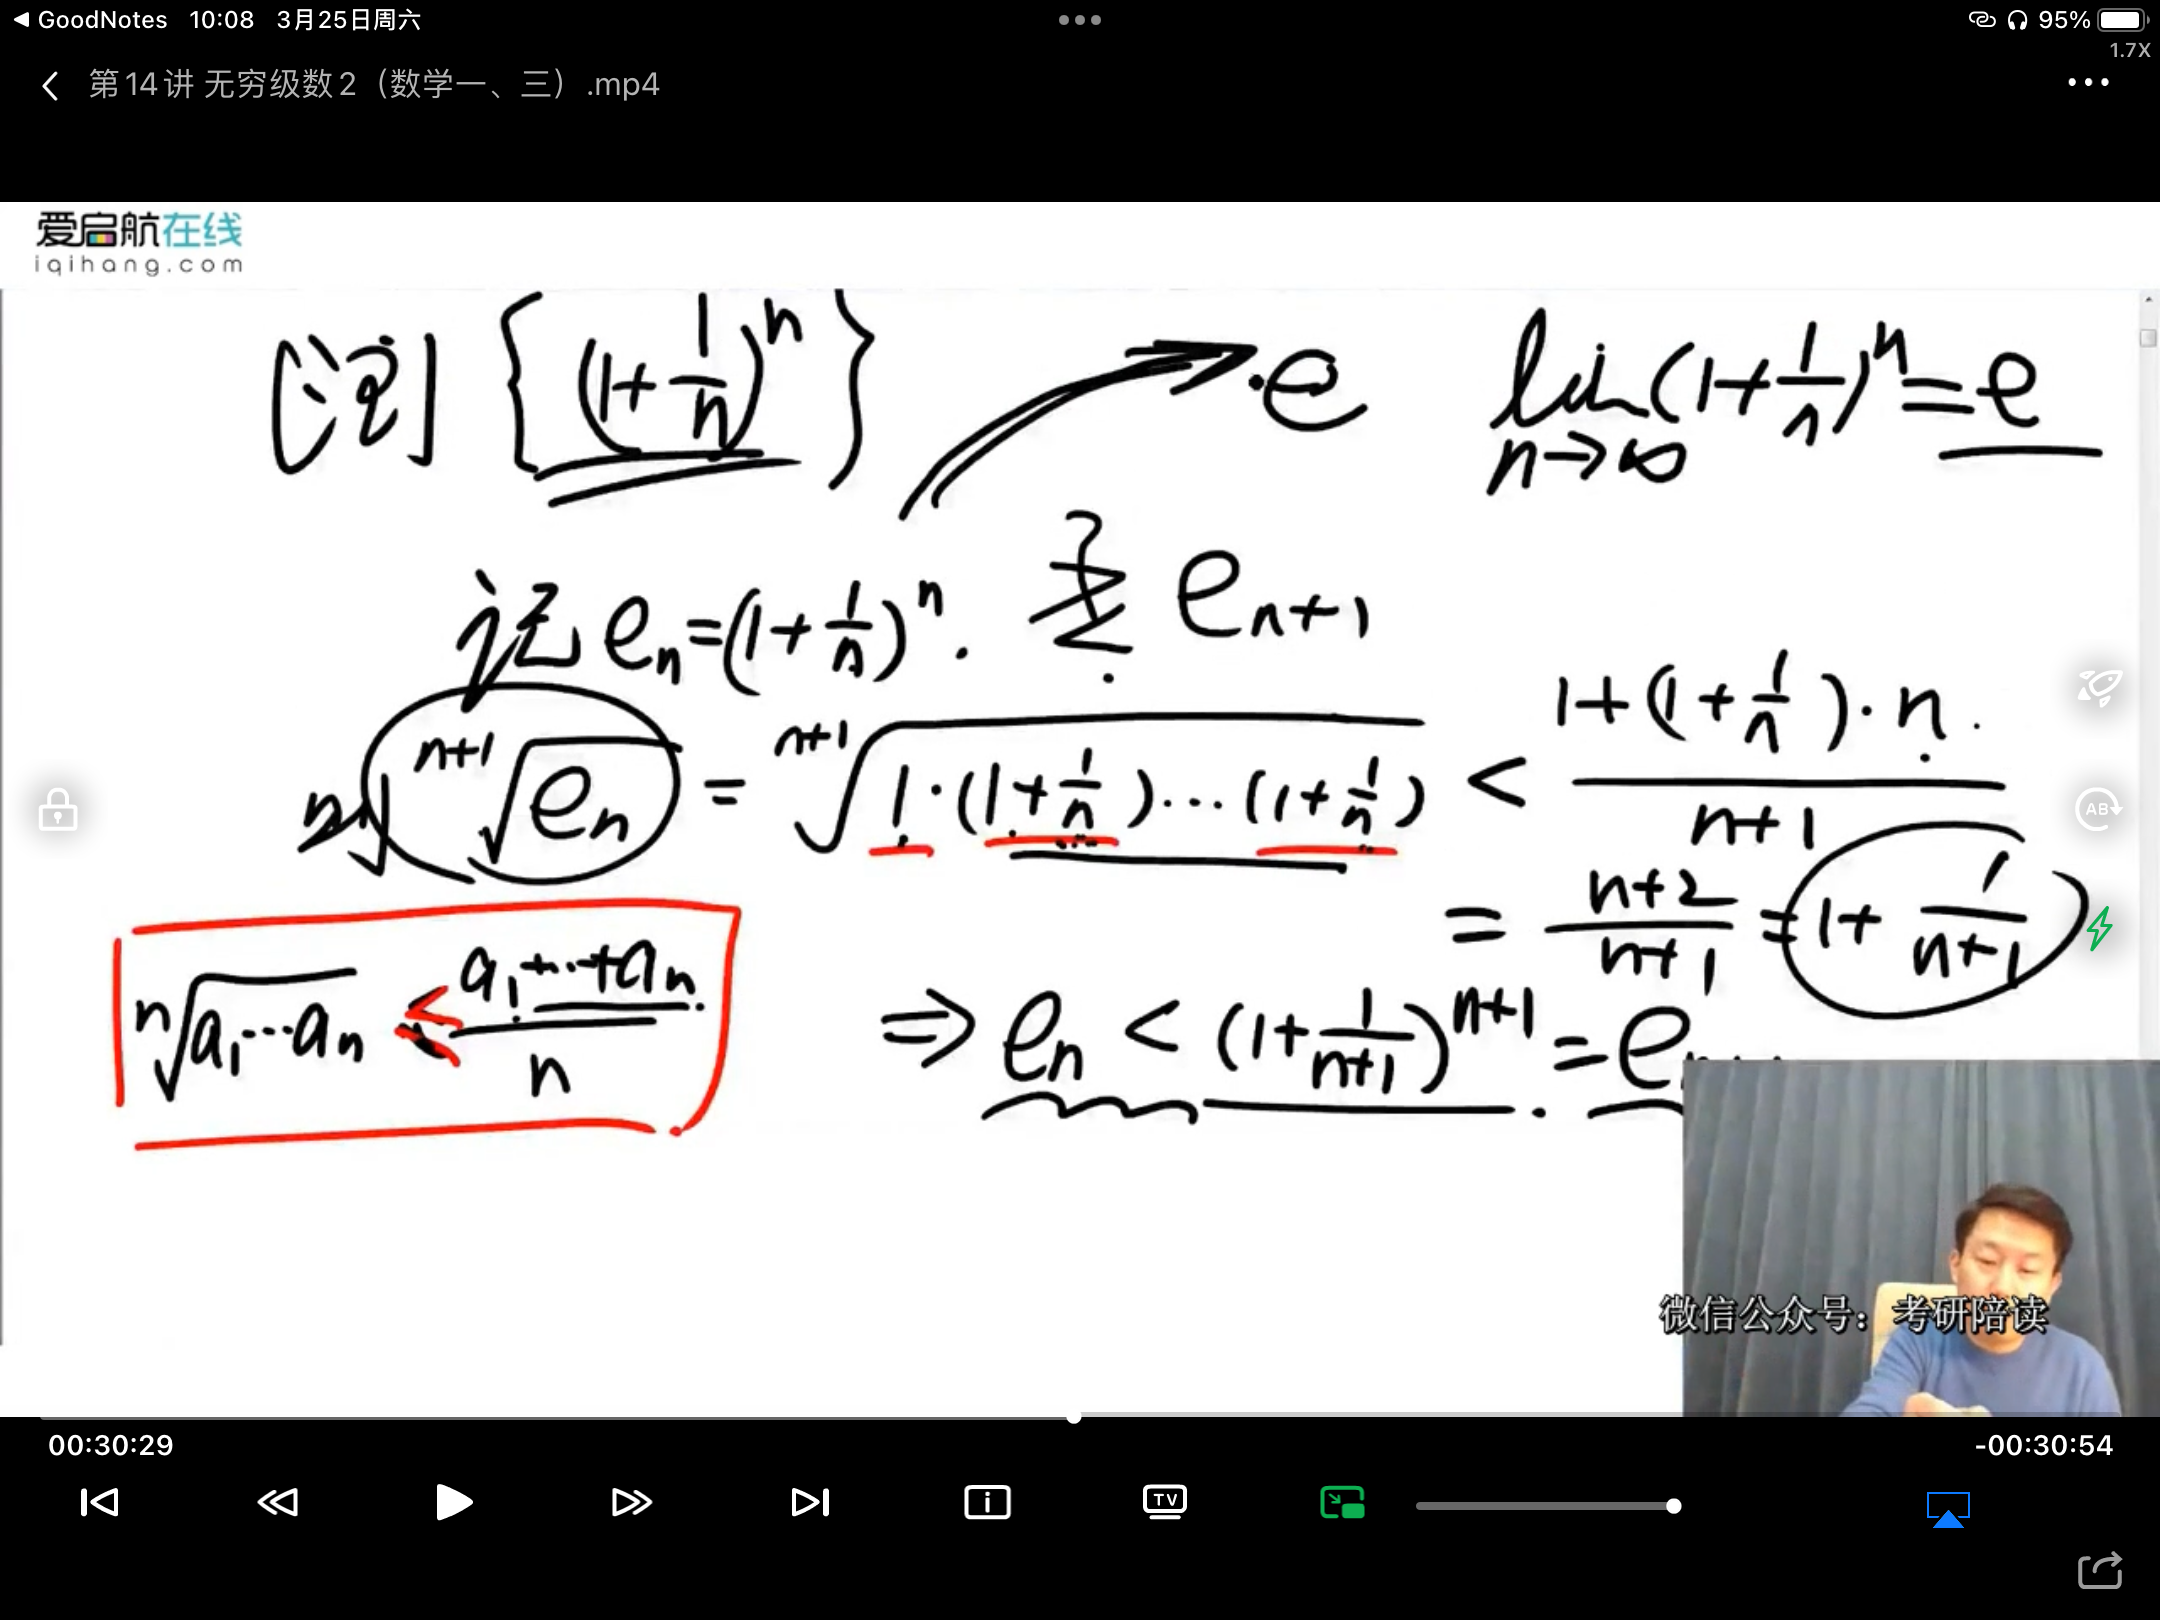 GoodNotes 10:08 3月25日周六 95%
1.7X
第14讲 无穷级数2（数学一、三）.mp4
爱启航在线
iqihang.com
[注] {(1+1/n)^n} e lim n→∞ (1+1/n)^n = e
记 e_n = (1+1/n)^n. e_{n+1}
^{n+1}√e_n = ^{n+1}√(1·(1+1/n)···(1+1/n)) < (1+(1+1/n)·n)/(n+1)
= (n+2)/(n+1) = 1+1/(n+1)
^n√(a_1···a_n) ≤ (a_1+···+a_n)/n
⇒ e_n < (1+1/(n+1))^{n+1} = e
微信公众号：考研陪读
00:30:29 -00:30:54
TV
AB